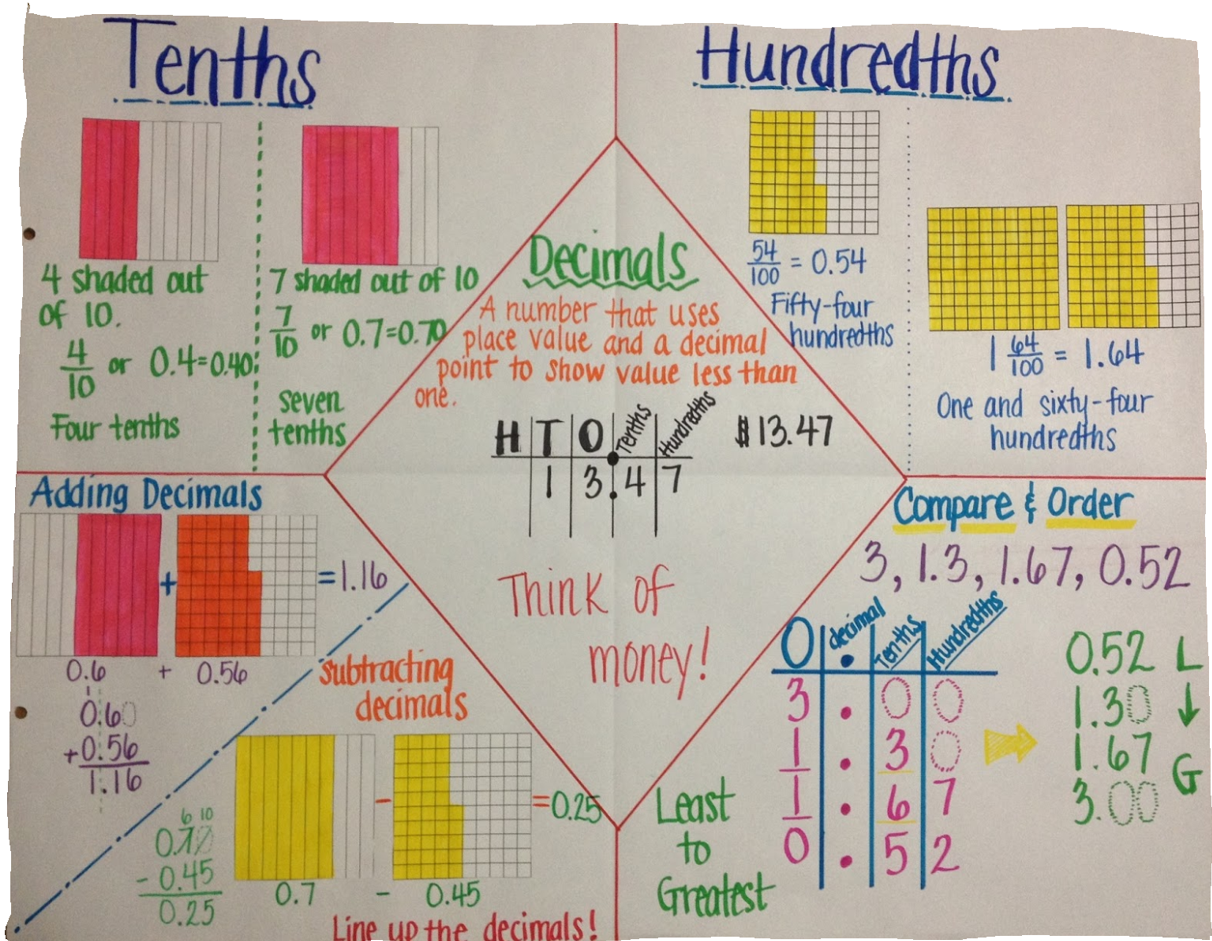 Tenths
4 shaded out
of 10.
4/10 or 0.4=0.40
Four tenths
7 shaded out of 10
7/10 or 0.7=0.70
seven
tenths
Hundredths
54/100 = 0.54
Fifty-four
hundredths
1 64/100 = 1.64
One and sixty-four
hundredths
Decimals
A number that uses
place value and a decimal
point to show value less than
one.
H T O . Tenths Hundredths
1 3 . 4 7
$13.47
Think of
money!
Adding Decimals
+ =1.16
0.6 + 0.56
0.60
+0.56
1.16
subtracting
decimals
- =0.25
0.7 - 0.45
6 10
0.70
- 0.45
0.25
Line up the decimals!
Compare & Order
3, 1.3, 1.67, 0.52
O . decimal Tenths Hundredths
3 . 0 0
1 . 3 0
1 . 6 7
0 . 5 2
Least
to
Greatest
0.52 L
1.30 ↓
1.67 G
3.00